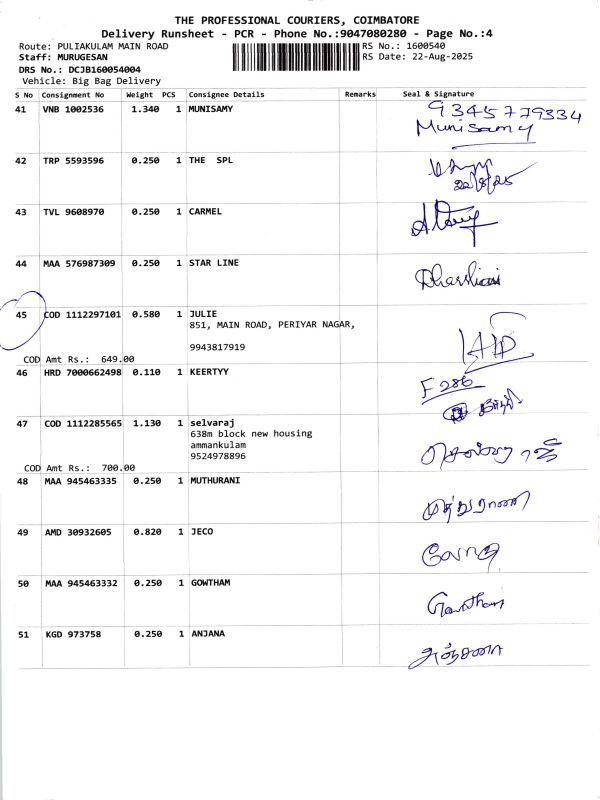 THE PROFESSIONAL COURIERS, COIMBATORE
Delivery Runsheet - PCR - Phone No.:9047080280 - Page No.:4
Route: PULIAKULAM MAIN ROAD RS No.: 1600540
Staff: MURUGESAN RS Date: 22-Aug-2025
DRS No.: DCJB160054004
Vehicle: Big Bag Delivery
S No Consignment No Weight PCS Consignee Details Remarks Seal & Signature
41 VNB 1002536 1.340 1 MUNISAMY 9345779334
Munisamy
42 TRP 5593596 0.250 1 THE SPL
22/8/25
43 TVL 9608970 0.250 1 CARMEL
44 MAA 576987309 0.250 1 STAR LINE Dharshini
45 COD 1112297101 0.580 1 JULIE
851, MAIN ROAD, PERIYAR NAGAR,
9943817919
COD Amt Rs.: 649.00
46 HRD 7000662498 0.110 1 KEERTYY F 286
47 COD 1112285565 1.130 1 selvaraj
638m block new housing
ammankulam செல்வராஜ்
9524978896
COD Amt Rs.: 700.00
48 MAA 945463335 0.250 1 MUTHURANI முத்துராணி
49 AMD 30932605 0.820 1 JECO
50 MAA 945463332 0.250 1 GOWTHAM Gowtham
51 KGD 973758 0.250 1 ANJANA அஞ்சனா